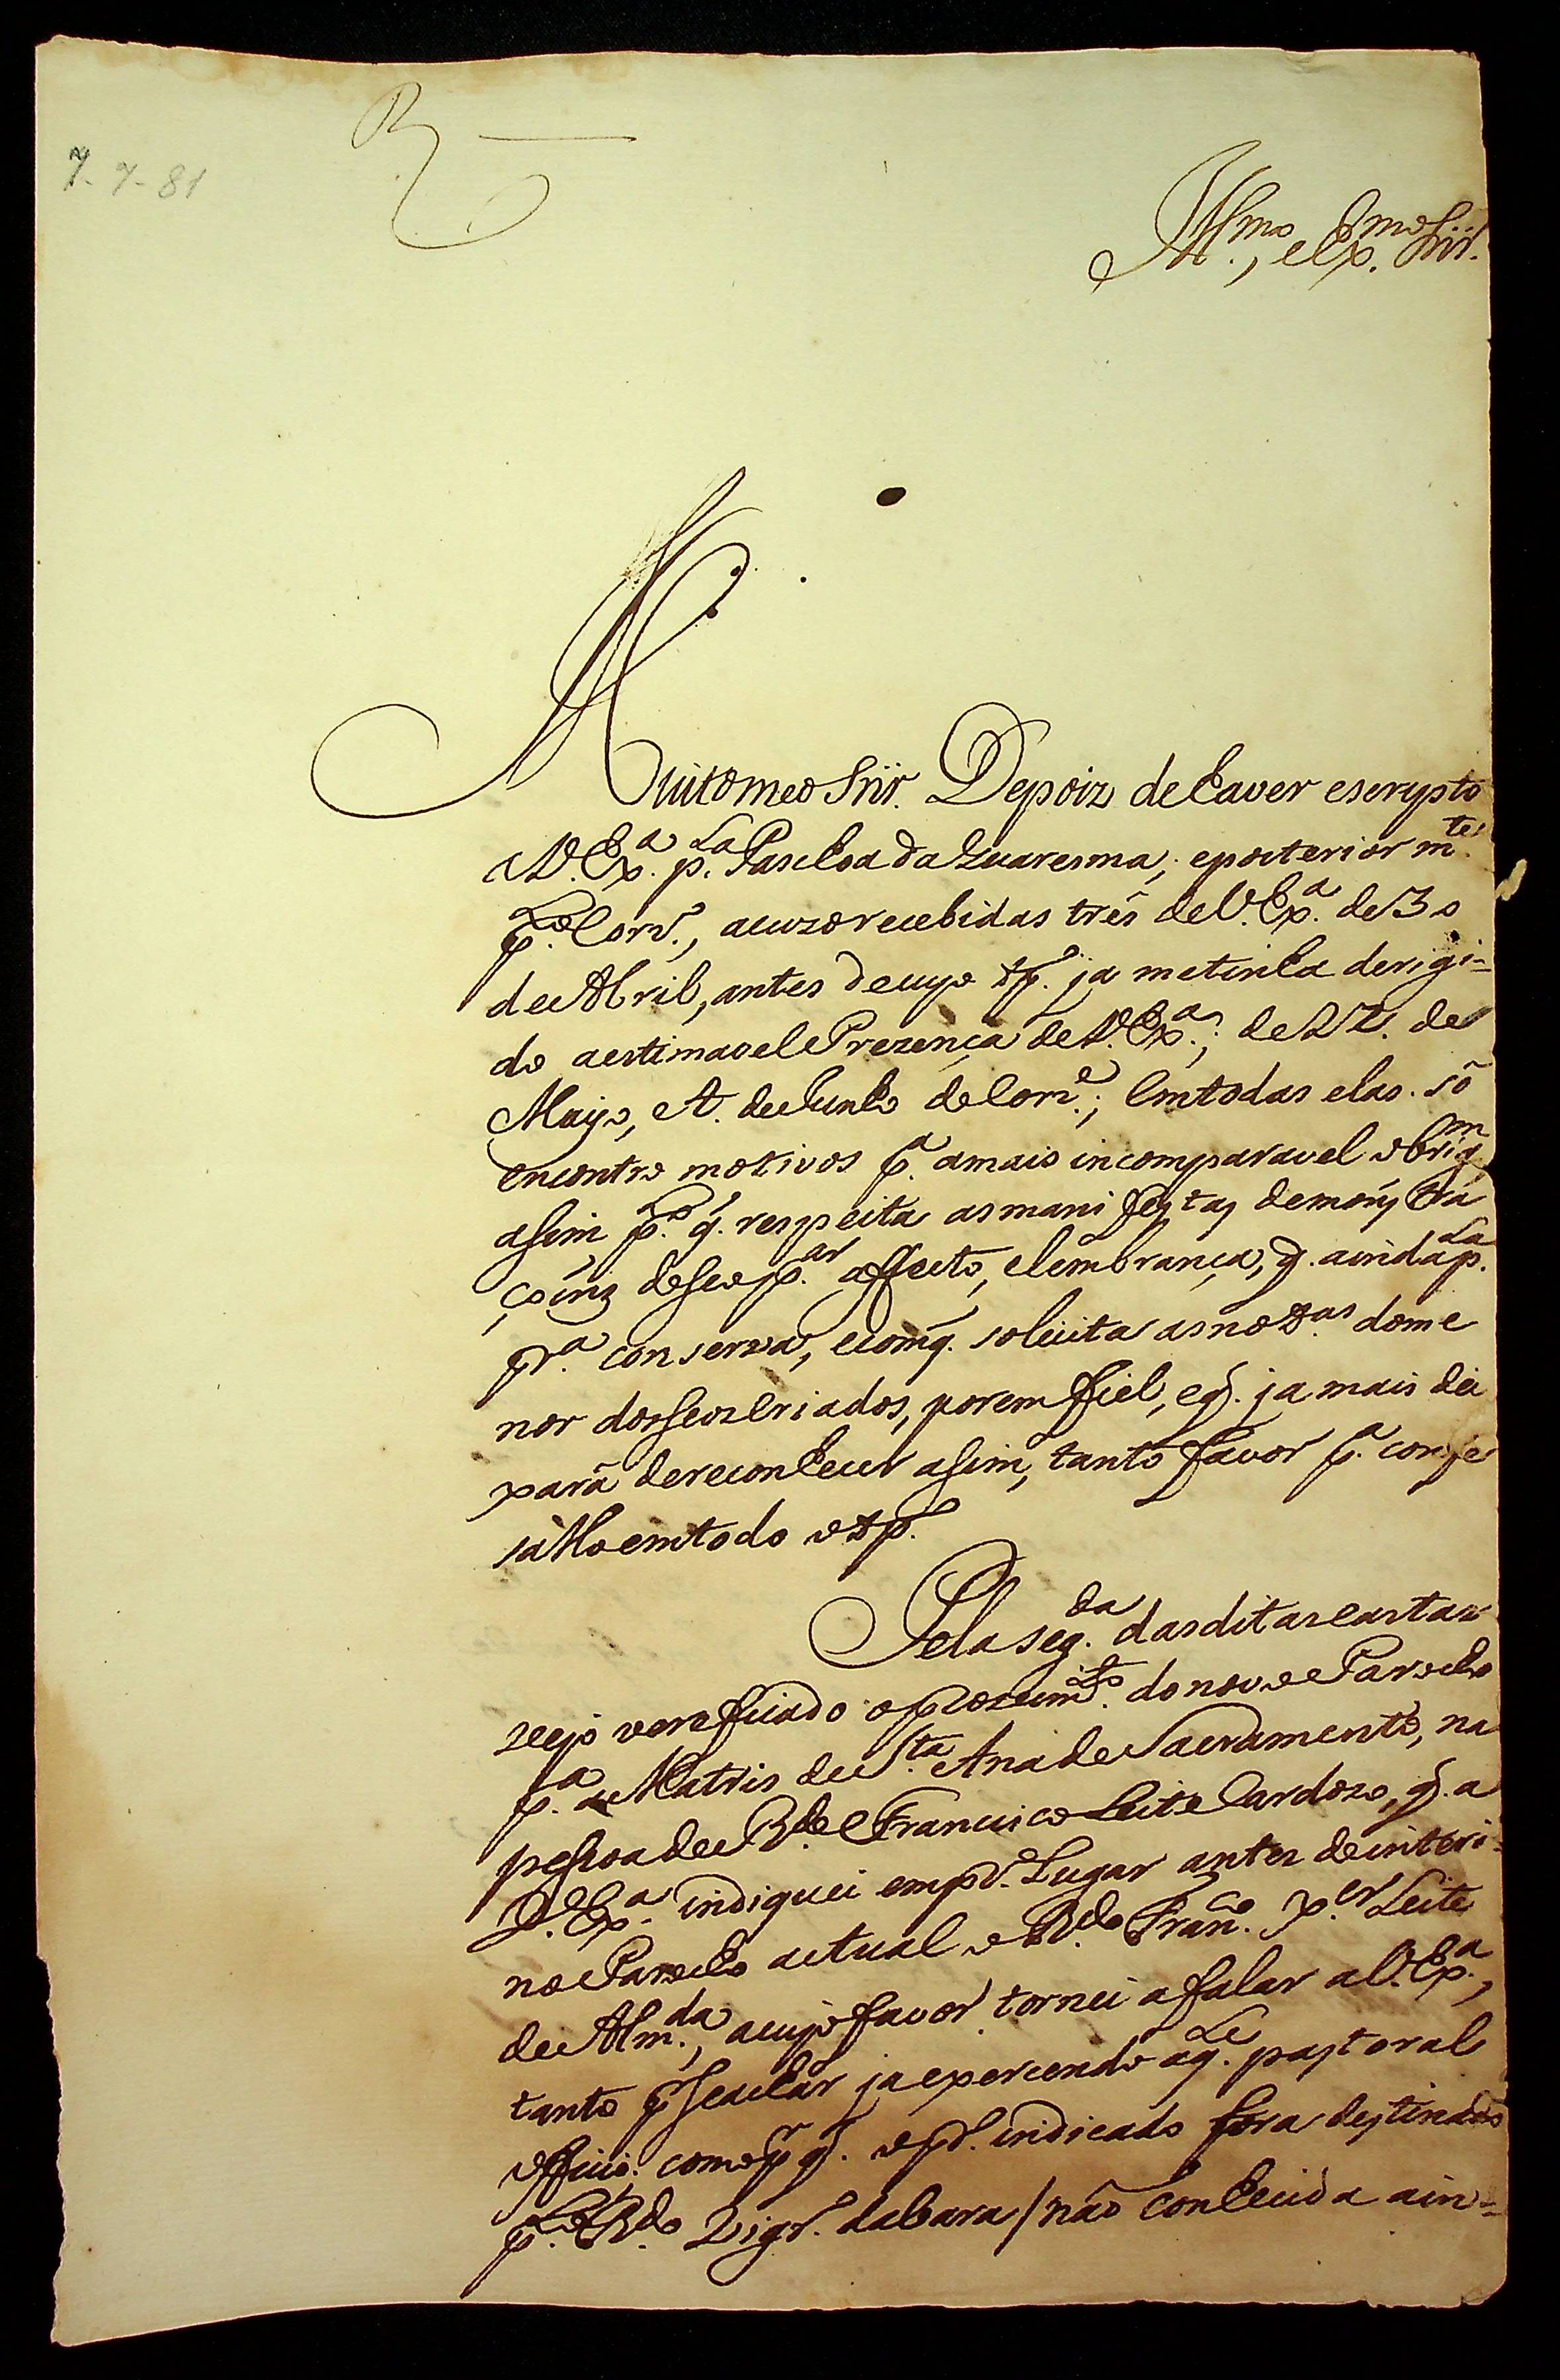 R
7-7-81
Ill.mo, e Ex.mo Snr.
Muito meo Snr. Depoiz de haver escrypto
a V. Ex.a p.la Paschoa da Quaresma, e posterior m.te
p.lo Corr.o, acuzo recebidas trés de V. Ex.a de 30
de Abril, antes de cujo tp.o ja me tinha derigi-
do a estimavel Prezença de V. Ex.a; de 22 de
Mayo, e 1. de Junho do Corr.e; em todas elas só
encontro motivos p.a a mais incomparavel obrig.m
asim p.lo q. respeita as manifestas demonstra
çoins de seo p.ar affecto, e lembrança, q. ainda p.la
pr.a conserva, e com q. solicita as not.as do me
nor dos seos Criados, porem fiel, e q. ja mais dei
xará de reconhecer asim, tanto favor p.a confe
sallo em todo o tp.o
Pela seg.da das ditas cartas
vejo verefficado o provim.to do novo Parocho
p.a a Matris de S.ta Ana do Sacramento, na
pessoa do R.do Francisco Leite Cardozo, q. a
V. Ex.a indiquei em pr.o Lugar antes do interi-
no Parocho actual o R.do Fran.co X.er Leite
de Alm.da, a cujo favor tornei a falar a V. Ex.a,
tanto p.r se achar ja exercendo aq.le pastoral
officio: como p.r q. o pr.o indicado fora destinado
p.lo R.do Vigr.o da Vara / não conhecida ain-